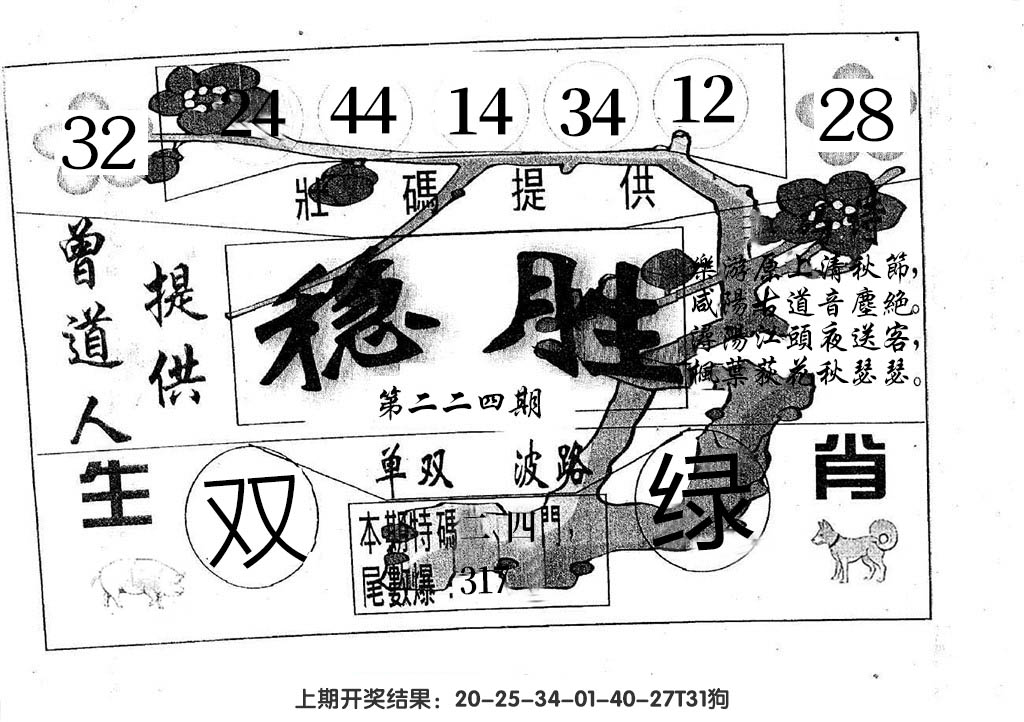 32 24 44 14 34 12 28
壯碼提供
曾道人
提供
稳胜
第二二四期
樂游原上清秋節，
咸陽古道音塵絕。
潯陽江頭夜送客，
楓葉荻花秋瑟瑟。
单双 波路
生
双
绿
肖
本期特碼二、四門，
尾數爆:317
上期开奖结果：20-25-34-01-40-27T31狗